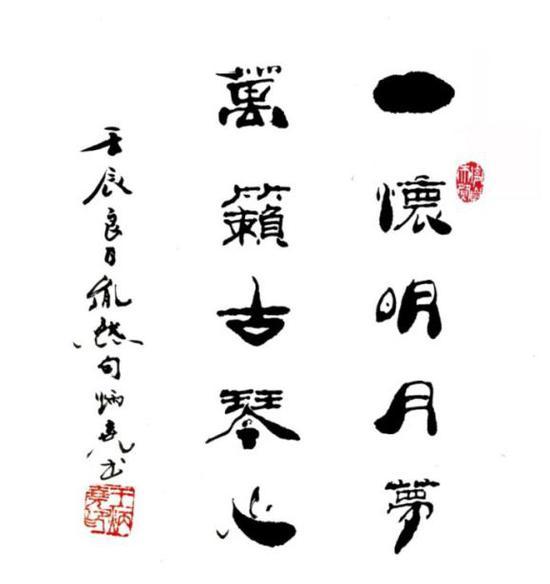 一懷明月夢
萬籟古琴心
壬辰良日胤然句炳堯書